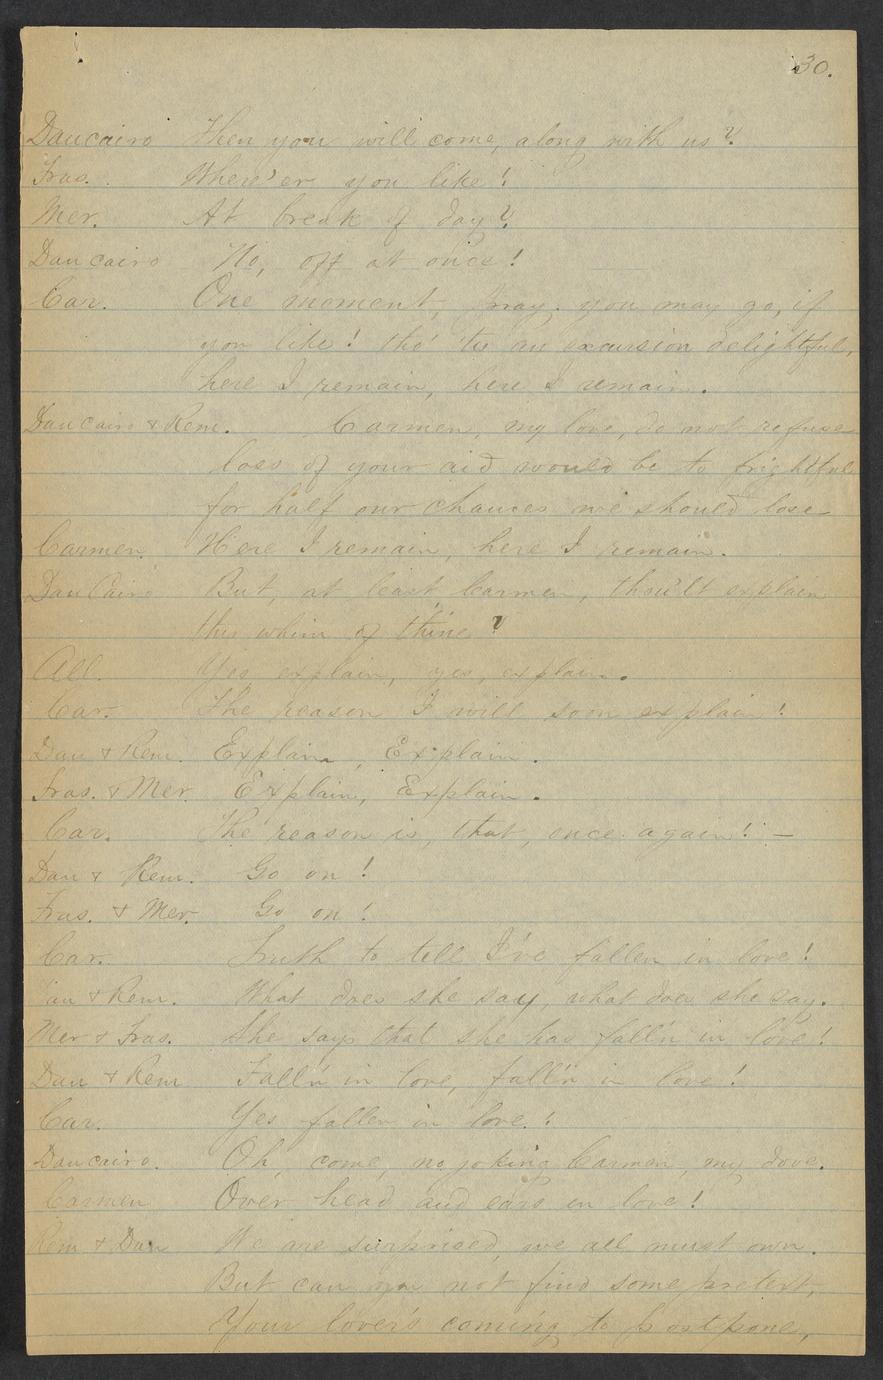 30.
Dancairo Then you will come, along with us?
Fras. Where'er you like!
Mer. At break of day?
Dancairo No, off at once!
Car. One moment, pray. you may go, if
you like! tho' 'tis an excursion delightful,
here I remain, here I remain.
Dancairo & Rem. Carmen, my love, do not refuse
loss of your aid would be to frightful
for half our chances we should lose
Carmen. Here I remain, here I remain.
Dan Cairo But, at least Carmen, thou'lt explain
this whim of thine?
All. Yes, explain, yes, explain.
Car. The reason I will soon explain!
Dan & Rem. Explain, Explain.
Fras. & Mer. Explain, Explain.
Car. The reason is, that, once again! —
Dan & Rem. Go on!
Fras. & Mer. Go on!
Car. Truth to tell I've fallen in love!
Dan & Rem. What does she say, what does she say.
Mer & Fras. She says that she has fall'n in love!
Dan & Rem Fall'n in love, fall'n in love!
Car. Yes fallen in love!
Dancairo. Oh, come, no joking Carmen, my dove.
Carmen Over head and ears in love!
Rem & Dan We are surprised, we all must own.
But can you not find some pretext,
Your lover's coming to postpone,